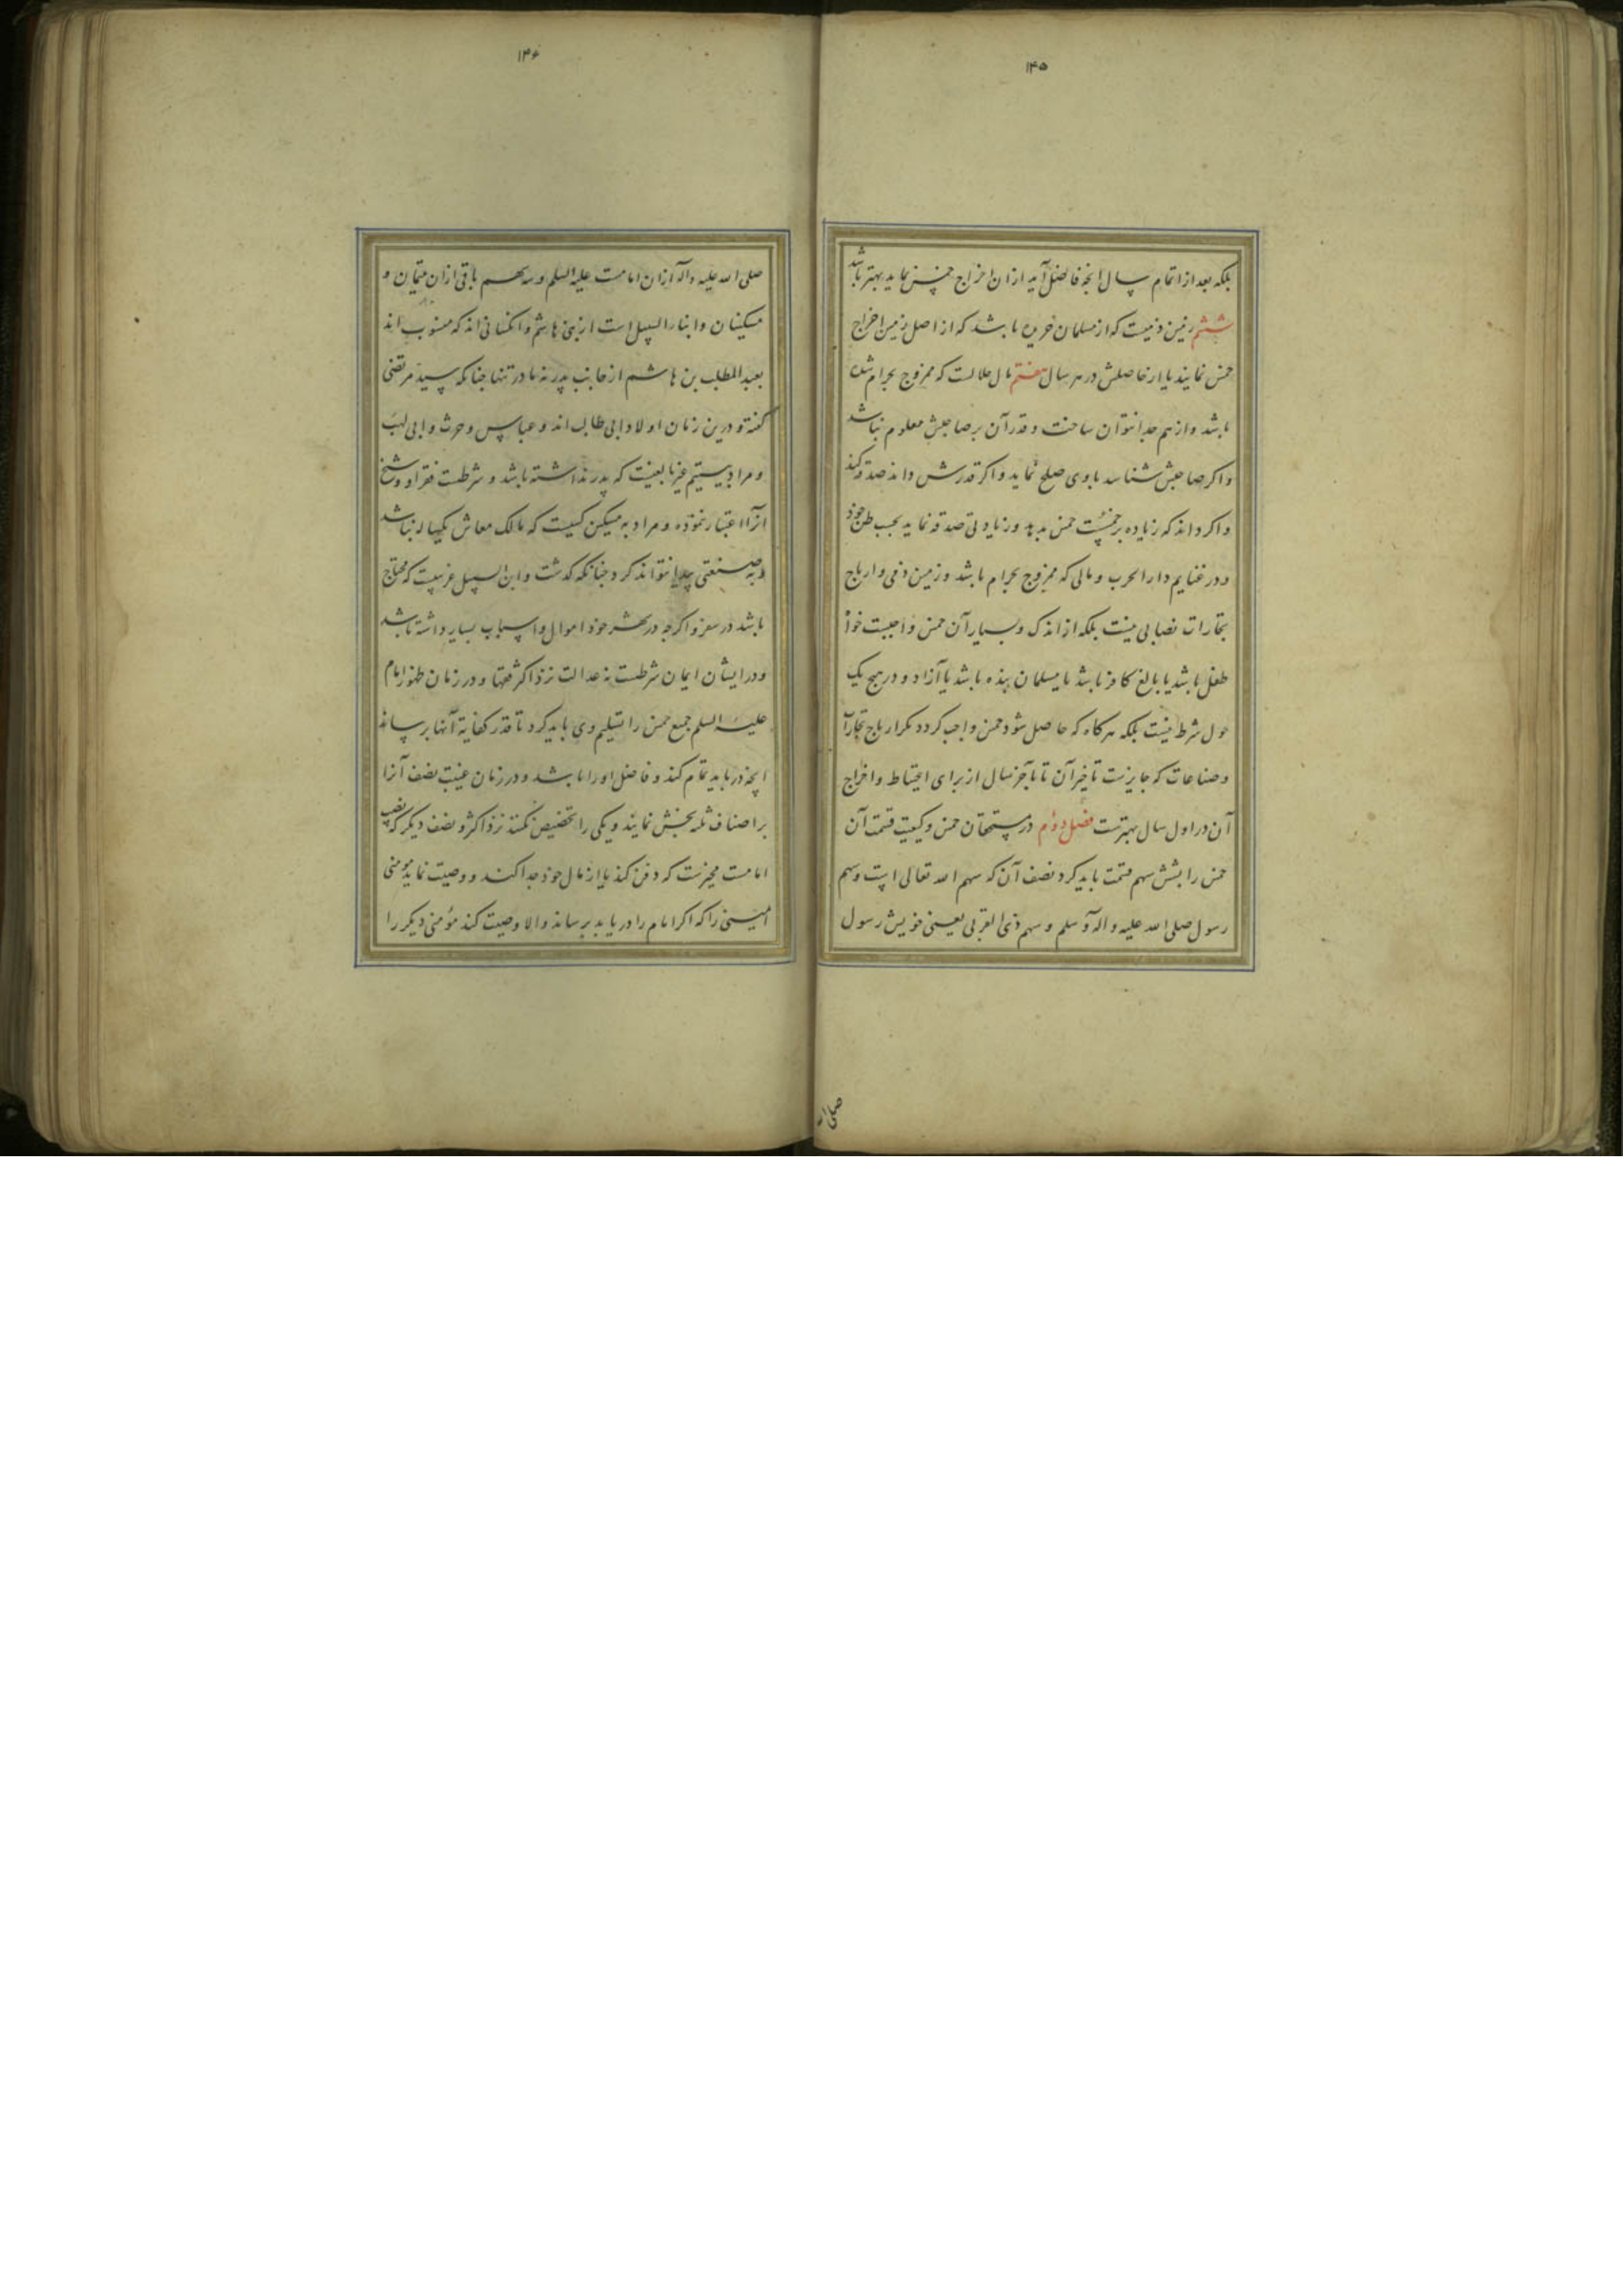 ۱۴۵
بلکه بعد از اتمام سال انچه فاضل آید ازان اخراج خمس نماید بهتر باشد
ششم زمین ذمیست که از مسلمان خریده باشد که از اصل زمین اخراج
خمس نمایند یا از حاصلش در هر سال هفتم مال حلالست که ممزوج بحرام شده
باشد و از هم جدا نتوان ساخت و قدر آن بر صاحبش معلوم نباشد
و اکر صاحبش شناسد باوی صلح نماید و اکر قدرش داند صدقه کند
و اکر داند که زیاده بر خمسست خمس بدهد و زیادتی صدقه نماید بحسب ظن خود
و در غنایم دار الحرب و مالی که ممزوج بحرام باشد و زمین ذمی و ارباح
تجارات نصابی نیست بلکه از اندک و بسیار آن خمس واجبست خواه
طفل باشد یا بالغ کافر باشد یا مسلمان بنده باشد یا آزاد و در هیچ یک
حول شرط نیست بلکه هر کاه که حاصل شود خمس واجب کردد مکر ارباح تجارات
و صناعات که جایزست تاخیر آن تا بآخر سال از برای احتیاط و اخراج
آن در اول سال بهترست فصل دوم در مستحقان خمس و کیفیت قسمت آن
خمس را بشش سهم قسمت باید کرد نصف آن که سهم الله تعالی است و سهم
رسول صلی الله علیه و اله و سلم و سهم ذی القربی یعنی خویش رسول
صلی الله
۱۴۶
صلی الله علیه واله ازان امامست علیه السلم و سه سهم باقی ازان یتیمان و
مسکینان و ابناء السبیل است از بنی هاشم و انکسانی اند که منسوب اند
بعبد المطلب بن هاشم از جانب پدر نه مادر تنها چنانکه سید مرتضی
کفته و درین زمان اولاد ابی طالب اند و عباس و حرث و ابی لهب
و مراد بیتیم غیر بالغیست که پدر نداشته باشد و شرطست فقر او و شیخ
انرا اعتبار ننموده و مراد به مسکین کسیست که مالک معاش یکساله نباشد
و به صنعتی پیدا نتواند کرد چنانکه کذشت و ابن السبیل غریبیست که محتاج
باشد در سفر و اکرچه در شهر خود اموال و اسباب بسیار داشته باشد
و در ایشان ایمان شرطست نه عدالت نزد اکثر فقها و در زمان ظهور امام
علیه السلم جمیع خمس را تسلیم وی باید کرد تا قدر کفایة آنها برساند
انچه در باید تمام کند و فاضل او را باشد و در زمان غیبت نصف آنرا
بر اصناف ثلثه بخش نمایند و یکی را تخصیص نکنند نزد اکثر و نصف دیکر که نصیب
امامست مخیرست که دفن کند یا از مال خود جدا کند و وصیت نماید مومنی
امینی را که اکر امام را دریابد برساند والا وصیت کند مؤمنی دیکر را